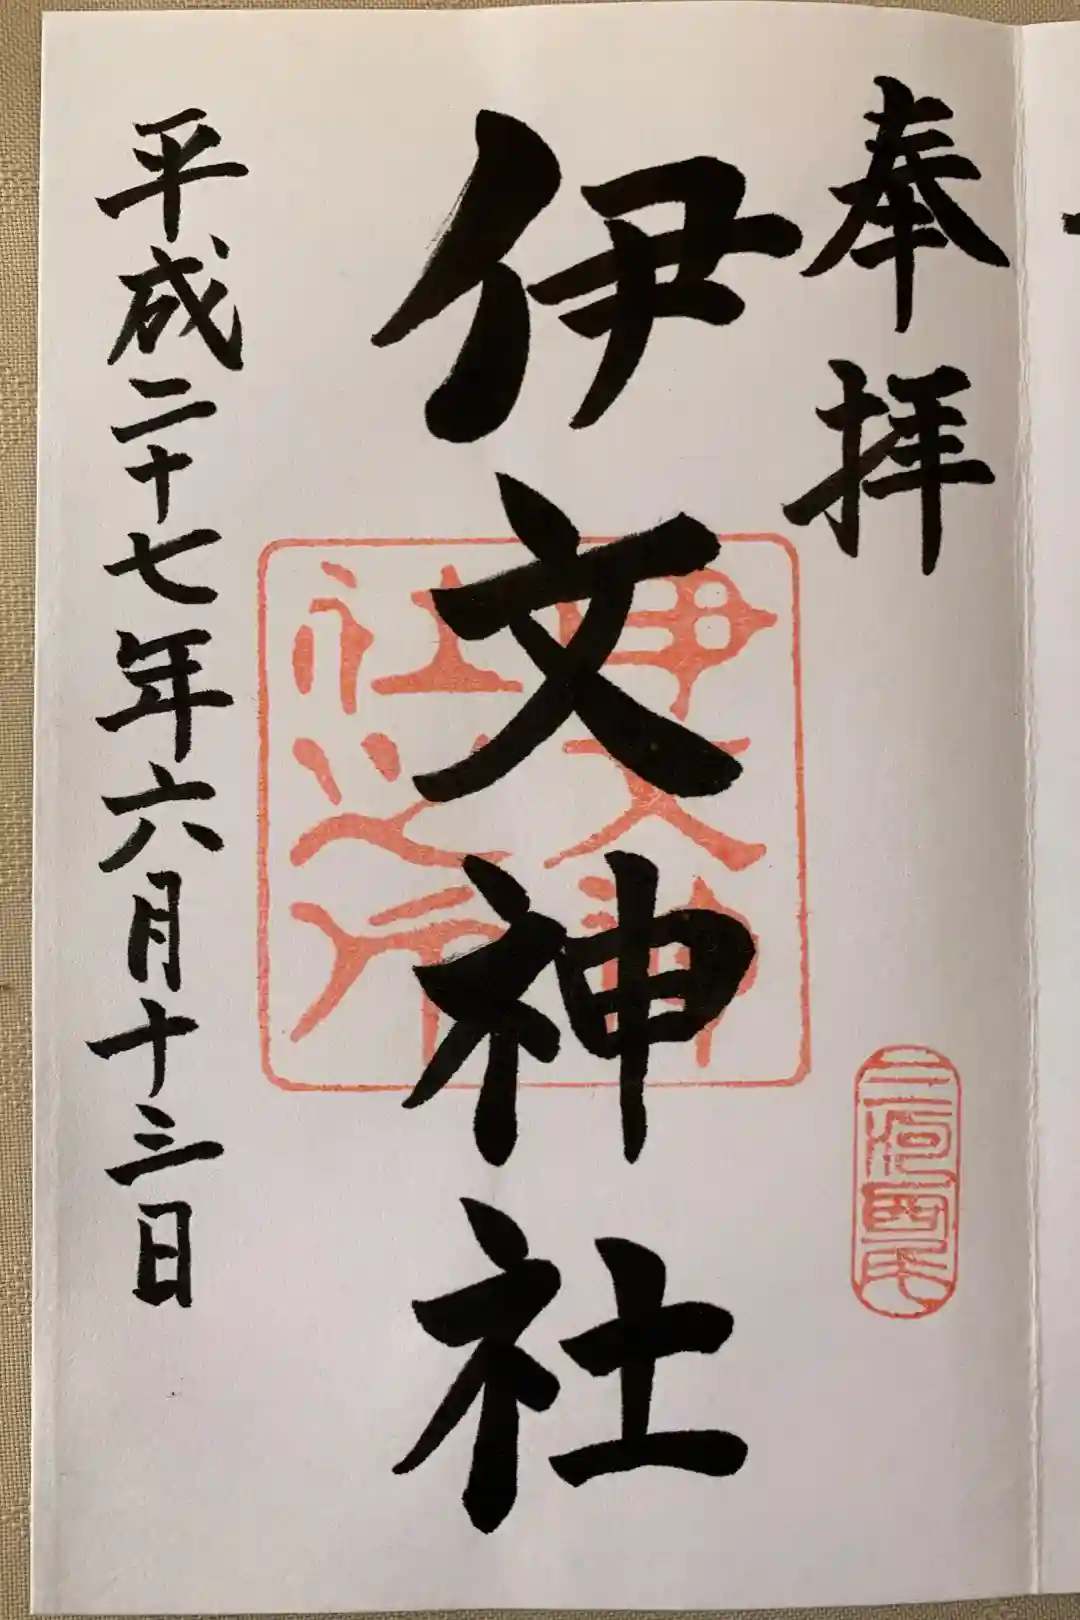 奉拝
三河西尾
伊文神社
伊文神社之印
平成二十七年六月十三日